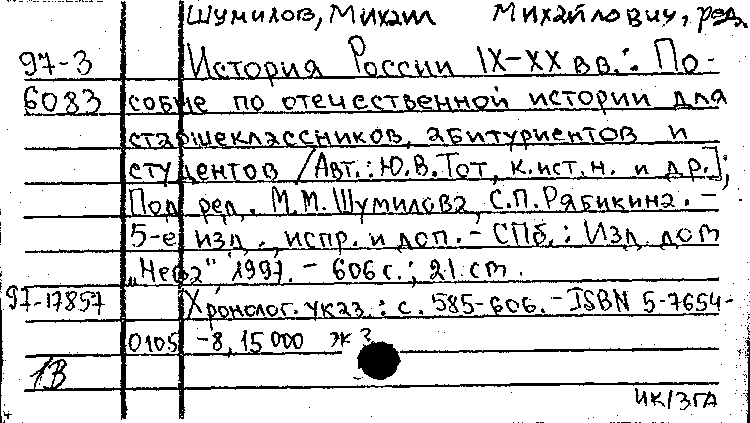 Шумилов, Михаил Михайлович, ред.
97-3 История России IX-XX вв.: По-
6083 собие по отечественной истории для
старшеклассников, абитуриентов и
студентов / Авт.: Ю.В.Тот, к.ист.н. и др.];
Под ред. М.М.Шумилова, С.П.Рябикина. -
5-е изд., испр. и доп. - СПб.: Изд. дом
„Нева", 1997. - 606 с.; 21 см.
97-17857 Хронолог. указ.: с. 585-606. - ISBN 5-7654-
0105-8, 15000 экз
1В
ИК/ЗГА